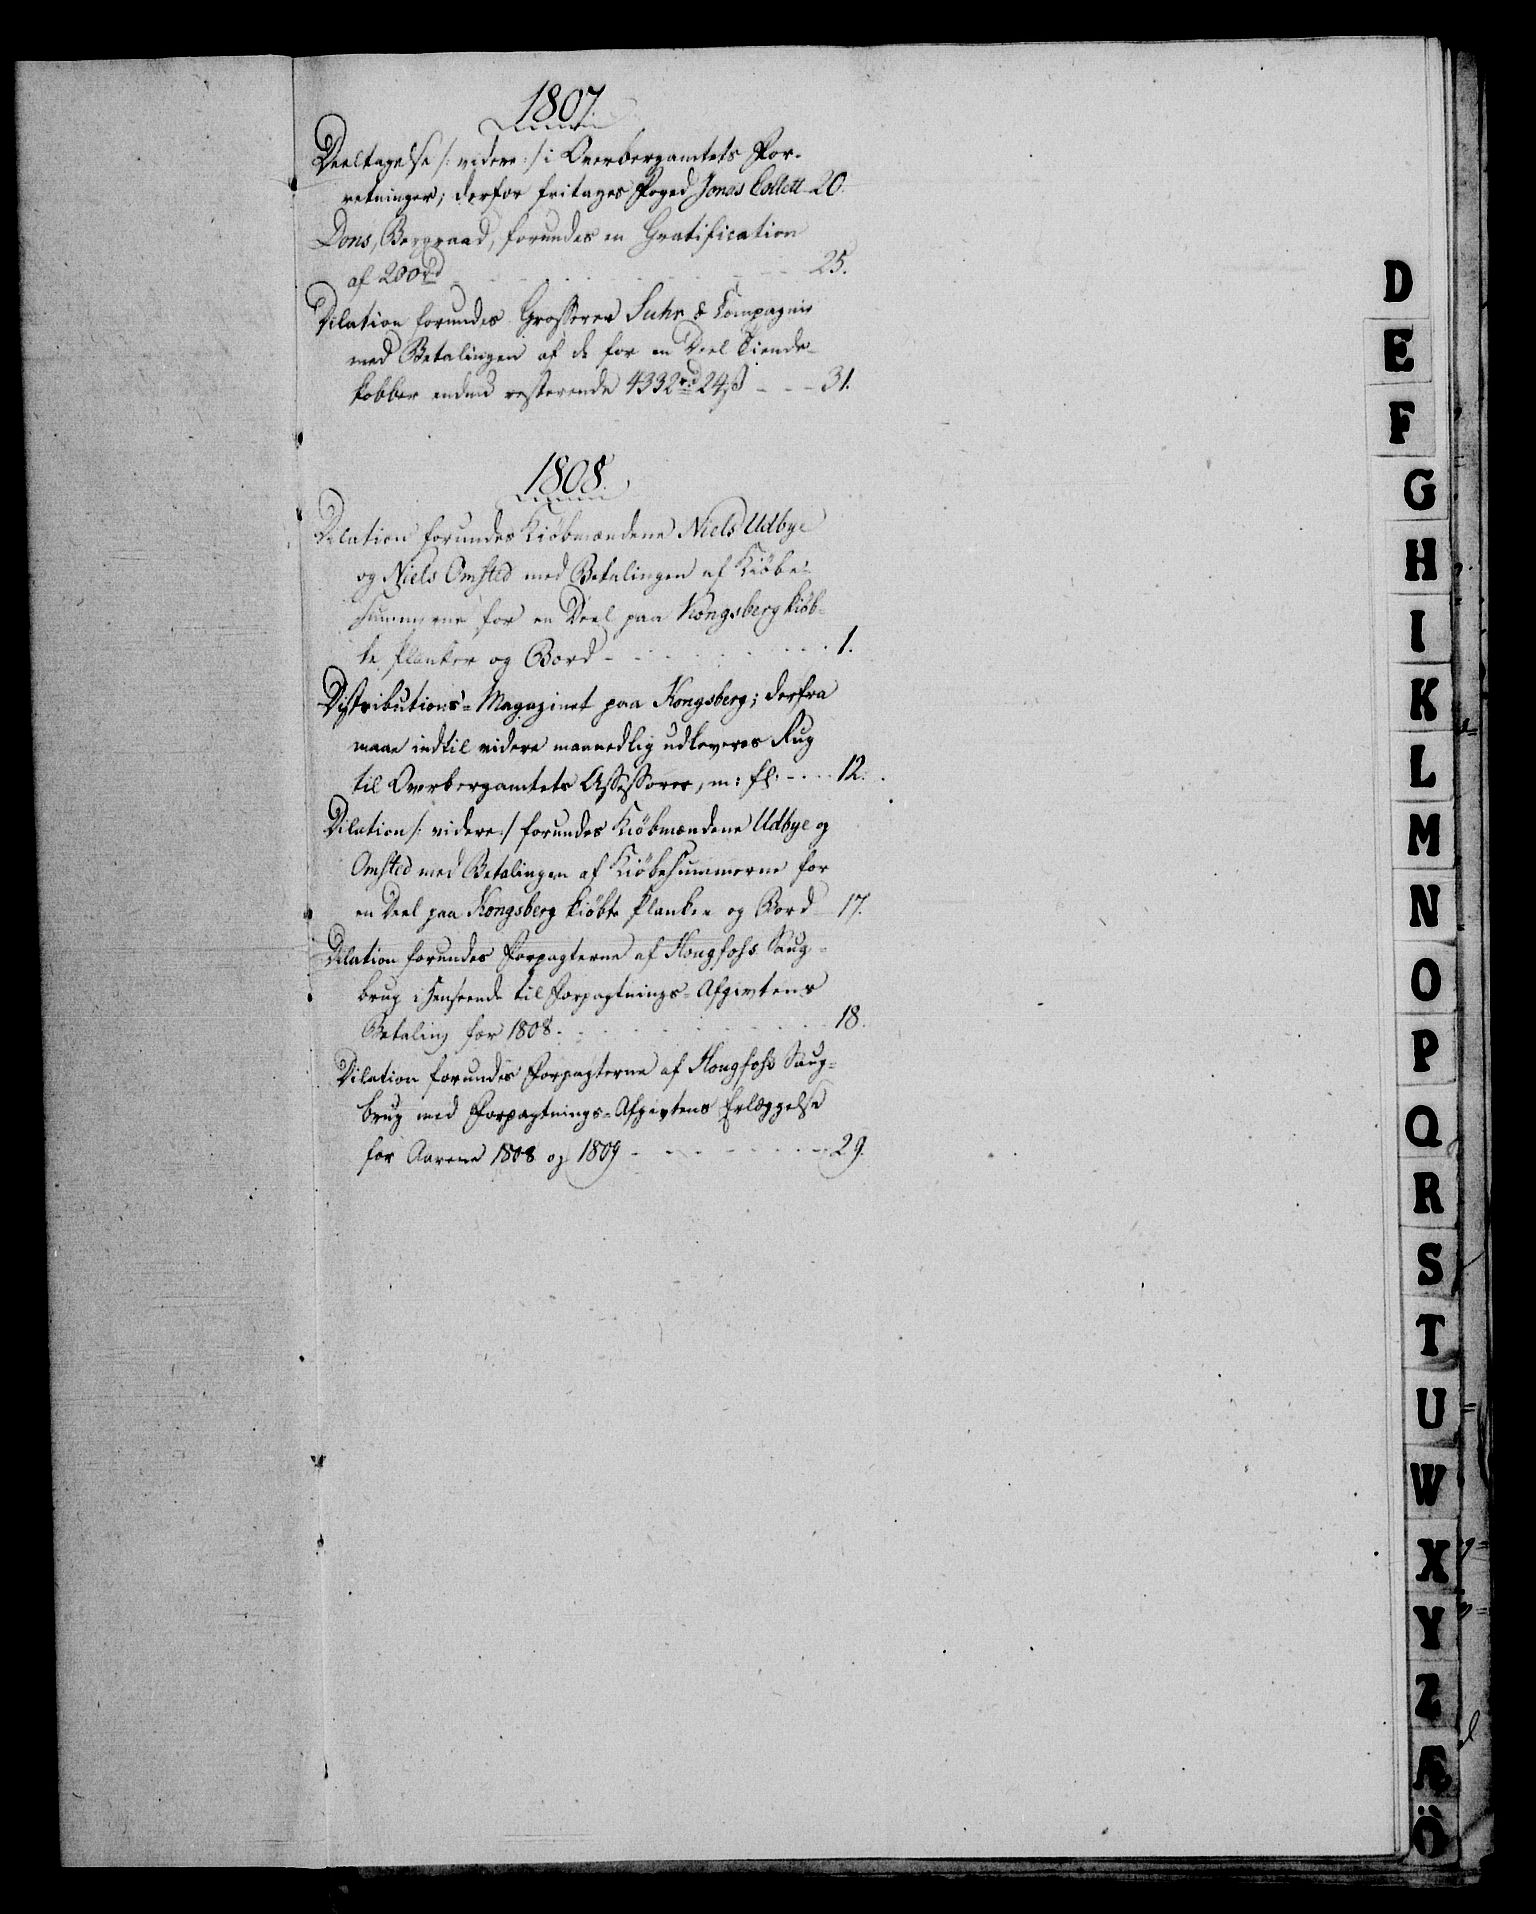 1807.
Deeltagelse /: videre :/ i Overbergamtets For-
retninger; derfor fritages Foged Jonas Collett 20.
Dons, Bergraad, forundes en Gratification
af 200 rd - - - 25.
Dilation forundes Grosserer Suhr & Compagnie
med Betalingen af de for en Deel Tiende-
kobber endnu resterende 4332 rd 24 ß - - - 31.
1808.
Dilation forundes Kiøbmændene Niels Udbye
og Niels Omsted med Betalingen af Kiøbe-
summerne for en Deel paa Kongsberg kiøb-
te Planker og Bord - - - 1.
Distributions-Magazinet paa Kongsberg; derfra
maae indtil videre maanedlig udleveres Rug
til Overbergamtets Assessorer, m: fl. - - - 12.
Dilation /: videre :/ forundes Kiøbmændene Udbye og
Omsted med Betalingen af Kiøbesummerne for
en Deel paa Kongsberg kiøbte Planker og Bord 17.
Dilation forundes Forpagterne af Hougfoss Saug-
brug i Henseende til Forpagtnings-Afgivtens
Betaling for 1808. - - - 18.
Dilation forundes Forpagterne af Hougfoss Saug-
brug med Forpagtnings-Afgivtens Erlæggelse
for Aarene 1808 og 1809 - - - 29.
D
E
F
G
H
I
K
L
M
N
O
P
Q
R
S
T
U
W
X
Y
Z
Æ
Ö